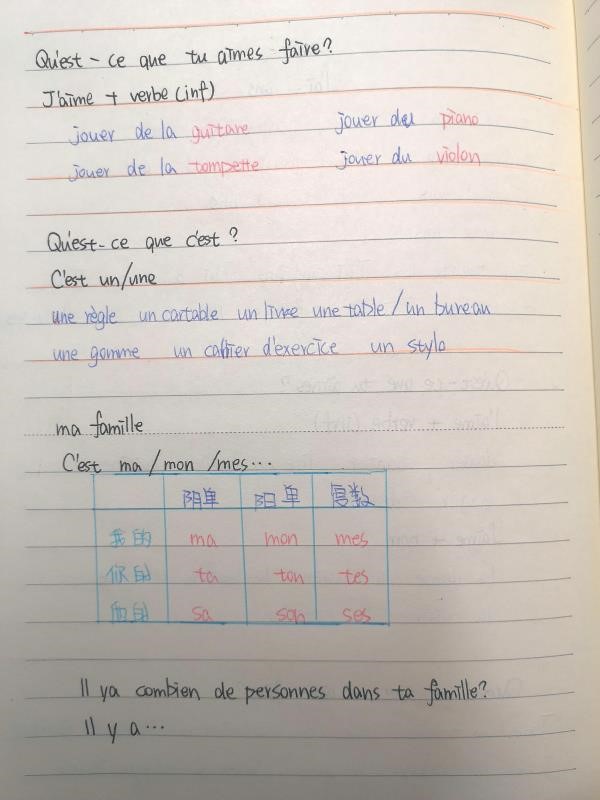 Qu'est-ce que tu aimes faire?
J'aime + verbe (inf)
jouer de la guitare jouer du piano
jouer de la tompette jouer du violon
Qu'est-ce que c'est?
C'est un/une
une règle un cartable un livre une table / un bureau
une gomme un cahier d'exercice un stylo
ma famille
C'est ma / mon / mes...
阴单 阳单 复数
我的 ma mon mes
你的 ta ton tes
他的 sa son ses
Il ya combien de personnes dans ta famille?
Il y a...